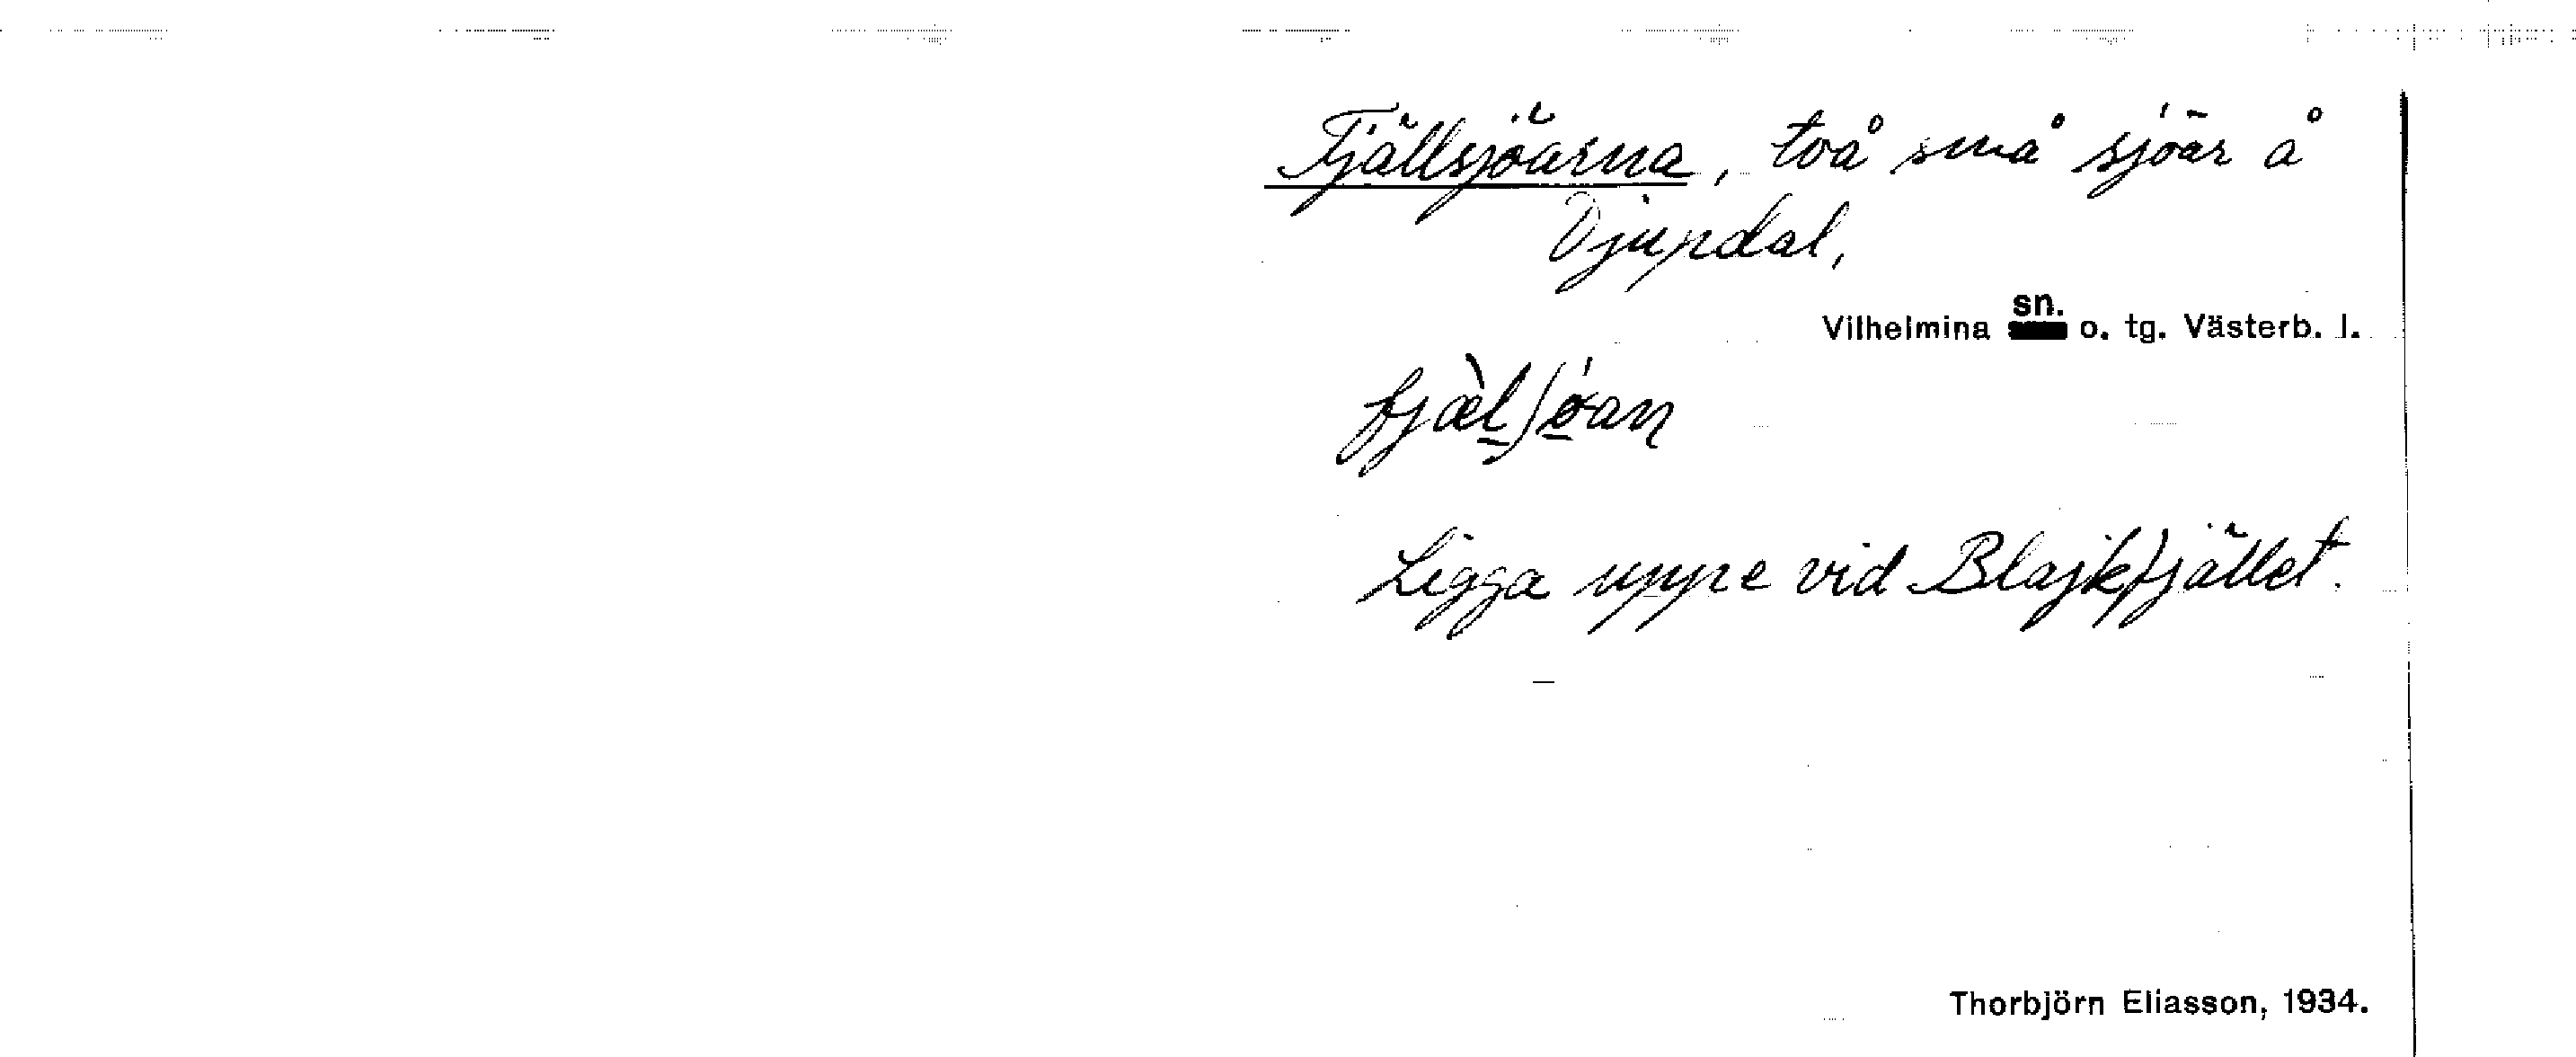 Fjällsjöarna, två små sjöar å
Djupdal,
Vilhelmina sn. o. tg. Västerb. l.
fjæ̀l̲ʃǿ̲an
Ligga uppe vid Blajkfjället.
Thorbjörn Eliasson, 1934.